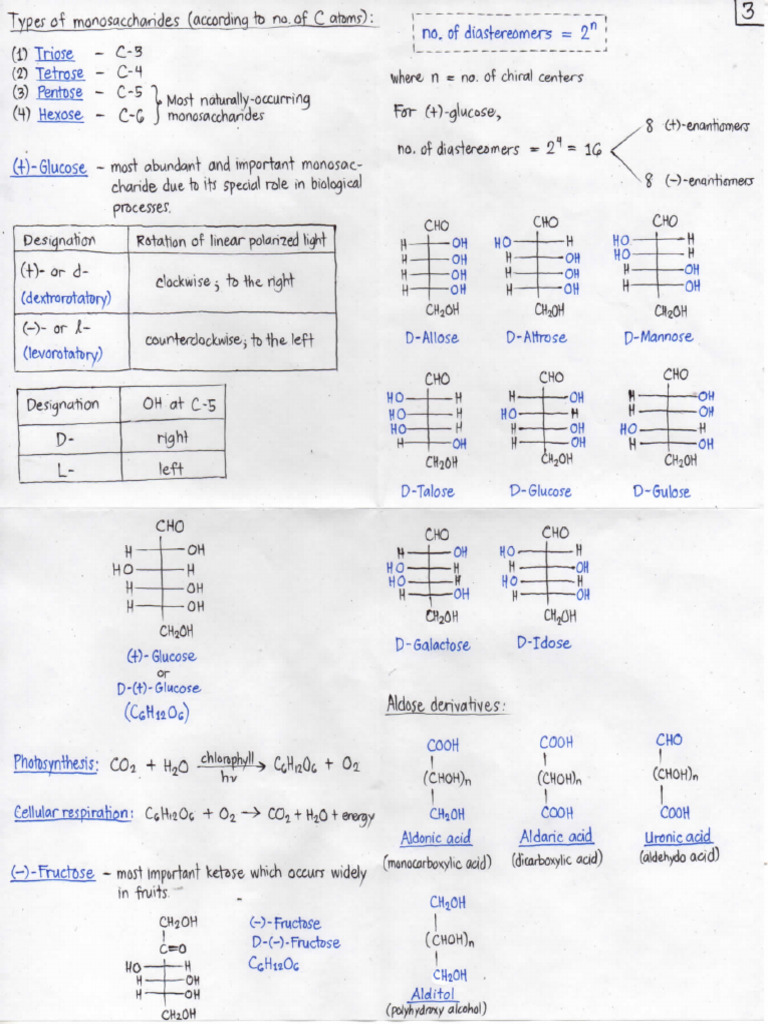 3
Types of monosaccharides (according to no. of C atoms):
(1) Triose – C-3
(2) Tetrose – C-4
(3) Pentose – C-5
(4) Hexose – C-6
Most naturally-occurring
monosaccharides
(+)-Glucose – most abundant and important monosac-
charide due to its special role in biological
processes.
Designation Rotation of linear polarized light
(+)- or d-
(dextrorotatory)
clockwise; to the right
(-)- or l-
(levorotatory)
counterclockwise; to the left
Designation OH at C-5
D- right
L- left
CHO
H OH
HO H
H OH
H OH
CH2OH
(+)-Glucose
or
D-(+)-Glucose
(C6H12O6)
Photosynthesis: CO2 + H2O chlorophyll → C6H12O6 + O2
hv
Cellular respiration: C6H12O6 + O2 → CO2 + H2O + energy
(-)-Fructose – most important ketose which occurs widely
in fruits.
CH2OH
C=O
HO H
H OH
H OH
CH2OH
(-)-Fructose
D-(-)-Fructose
C6H12O6
no. of diastereomers = 2^n
where n = no. of chiral centers
For (+)-glucose,
no. of diastereomers = 2^4 = 16
8 (+)-enantiomers
8 (-)-enantiomers
CHO CHO CHO
H OH HO H HO H
H OH H OH HO H
H OH H OH H OH
H OH H OH H OH
CH2OH CH2OH CH2OH
D-Allose D-Altrose D-Mannose
CHO CHO CHO
HO H H OH H OH
HO H HO H H OH
HO H H OH HO H
H OH H OH H OH
CH2OH CH2OH CH2OH
D-Talose D-Glucose D-Gulose
CHO CHO
H OH HO H
HO H H OH
HO H HO H
H OH H OH
CH2OH CH2OH
D-Galactose D-Idose
Aldose derivatives:
COOH COOH CHO
(CHOH)n (CHOH)n (CHOH)n
CH2OH COOH COOH
Aldonic acid Aldaric acid Uronic acid
(monocarboxylic acid) (dicarboxylic acid) (aldehydo acid)
CH2OH
(CHOH)n
CH2OH
Alditol
(polyhydroxy alcohol)